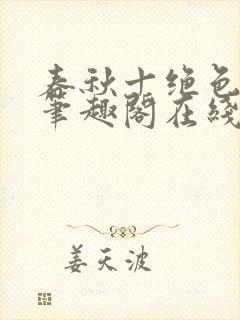 春秋十绝色
笔趣阁在线
姜天波